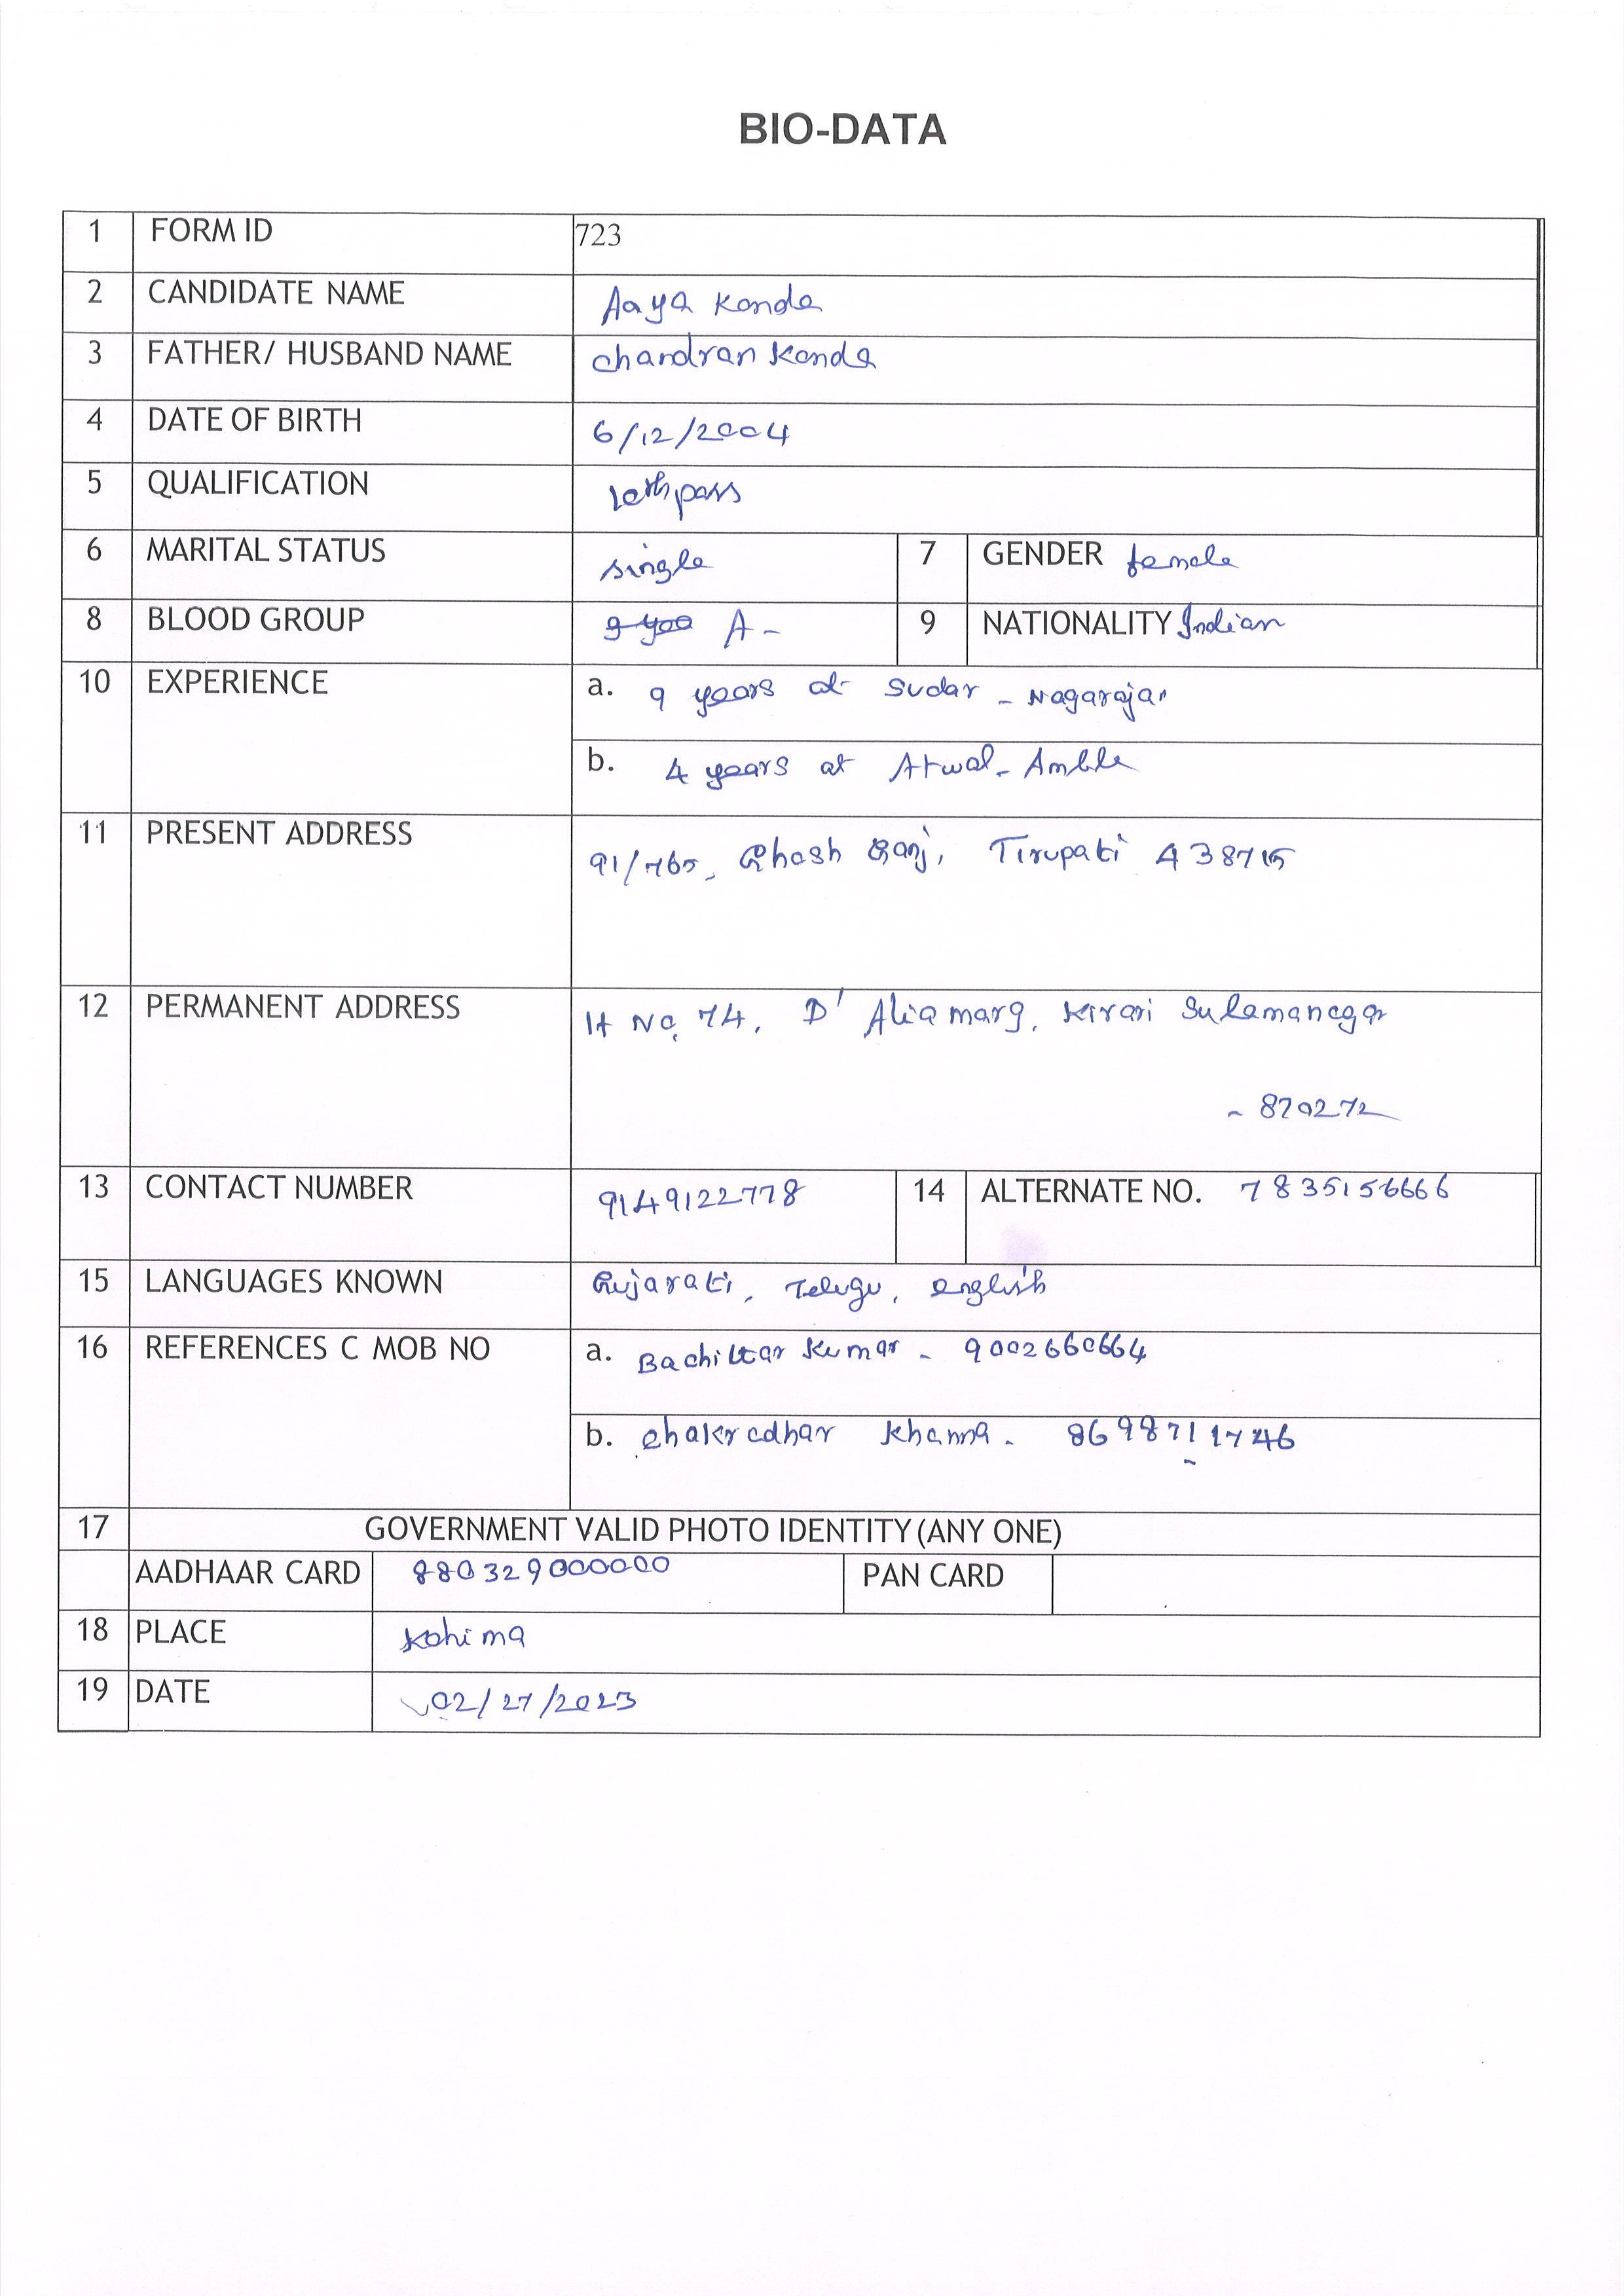 BIO-DATA
1 FORM ID 723
2 CANDIDATE NAME Aaya Konda
3 FATHER/ HUSBAND NAME chandran Konda
4 DATE OF BIRTH 6/12/2004
5 QUALIFICATION 10th pass
6 MARITAL STATUS single 7 GENDER female
8 BLOOD GROUP A- 9 NATIONALITY Indian
10 EXPERIENCE a. 9 years at Sudar - Nagarajan
b. 4 years at Atwal - Amble
11 PRESENT ADDRESS 91/765, Ghosh Ganj, Tirupati 438715
12 PERMANENT ADDRESS H No, 74, D' Alia marg, Kirari Sulamanagar
- 870272
13 CONTACT NUMBER 9149122778 14 ALTERNATE NO. 7835156666
15 LANGUAGES KNOWN Gujarati, Telugu, English
16 REFERENCES C MOB NO a. Bachittar Kumar - 9002660664
b. Chakradhar Khanna - 8698711746
17 GOVERNMENT VALID PHOTO IDENTITY (ANY ONE)
AADHAAR CARD 880329000000 PAN CARD
18 PLACE Kohima
19 DATE 02/27/2023